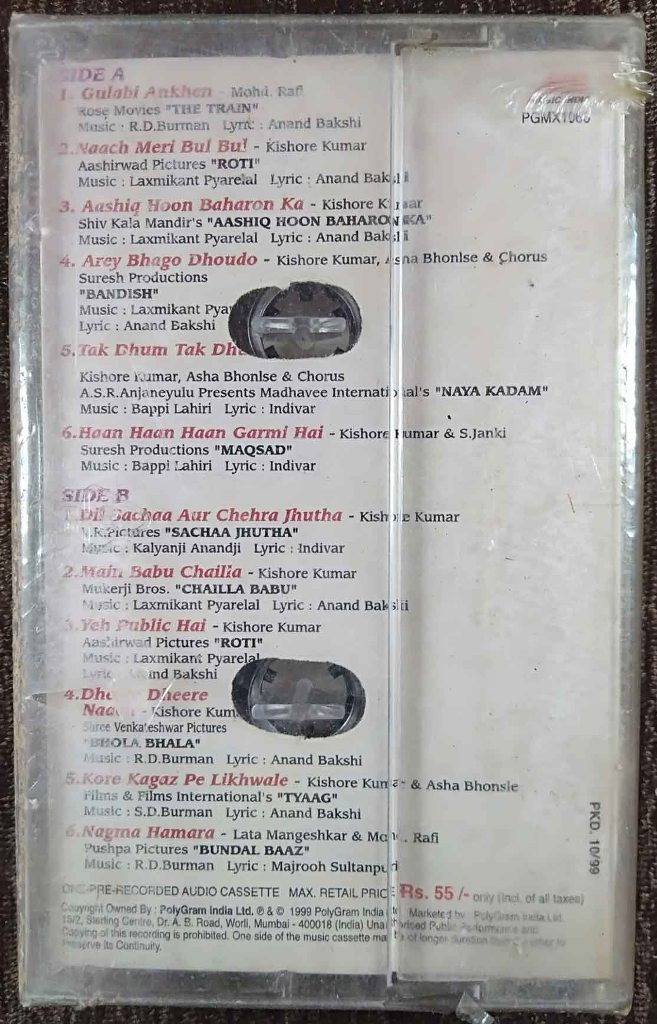 SIDE A
1. Gulabi Ankhen - Mohd. Rafi
Rose Movies "THE TRAIN"
Music : R.D.Burman Lyric : Anand Bakshi
2. Naach Meri Bul Bul - Kishore Kumar
Aashirwad Pictures "ROTI"
Music : Laxmikant Pyarelal Lyric : Anand Bakshi
3. Aashiq Hoon Baharon Ka - Kishore Kumar
Shiv Kala Mandir's "AASHIQ HOON BAHARON KA"
Music : Laxmikant Pyarelal Lyric : Anand Bakshi
4. Arey Bhago Dhoudo - Kishore Kumar, Asha Bhonlse & Chorus
Suresh Productions
"BANDISH"
Music : Laxmikant
Lyric : Anand Bakshi
5. Tak Dhum Tak
Kishore Kumar, Asha Bhonlse & Chorus
A.S.R.Anjaneyulu Presents Madhavee International's "NAYA KADAM"
Music : Bappi Lahiri Lyric : Indivar
6. Haan Haan Haan Garmi Hai - Kishore Kumar & S.Janki
Suresh Productions "MAQSAD"
Music : Bappi Lahiri Lyric : Indivar
SIDE B
1. Dil Sachaa Aur Chehra Jhutha - Kishore Kumar
V.R.Pictures "SACHAA JHUTHA"
Music : Kalyanji Anandji Lyric : Indivar
2. Main Babu Chailla - Kishore Kumar
Mukerji Bros. "CHAILLA BABU"
Music : Laxmikant Pyarelal Lyric : Anand Bakshi
3. Yeh Public Hai - Kishore Kumar
Aashirwad Pictures "ROTI"
Music : Laxmikant Pyarelal
Lyric : Anand Bakshi
4. Dheere Dheere
Naach - Kishore Kumar
Shree Venkateshwar Pictures
"BHOLA BHALA"
Music : R.D.Burman Lyric : Anand Bakshi
5. Kore Kagaz Pe Likhwale - Kishore Kumar & Asha Bhonsle
Films & Films International's "TYAAG"
Music : S.D.Burman Lyric : Anand Bakshi
6. Nagma Hamara - Lata Mangeshkar & Mohd. Rafi
Pushpa Pictures "BUNDAL BAAZ"
Music : R.D.Burman Lyric : Majrooh Sultanpuri
ONE PRE-RECORDED AUDIO CASSETTE MAX. RETAIL PRICE Rs. 55 /- only (incl. of all taxes)
Copyright Owned By : PolyGram India Ltd. ℗ & © 1999 PolyGram India Ltd Marketed by : PolyGram India Ltd.
15/2, Sterling Centre, Dr. A. B. Road, Worli, Mumbai - 400018 (India) Unauthorised Public Performance and
Copying of this recording is prohibited. One side of the music cassette may be of longer duration than the other to
Preserve Its Continuity.
MUSIC INDIA
PKD. 10/99